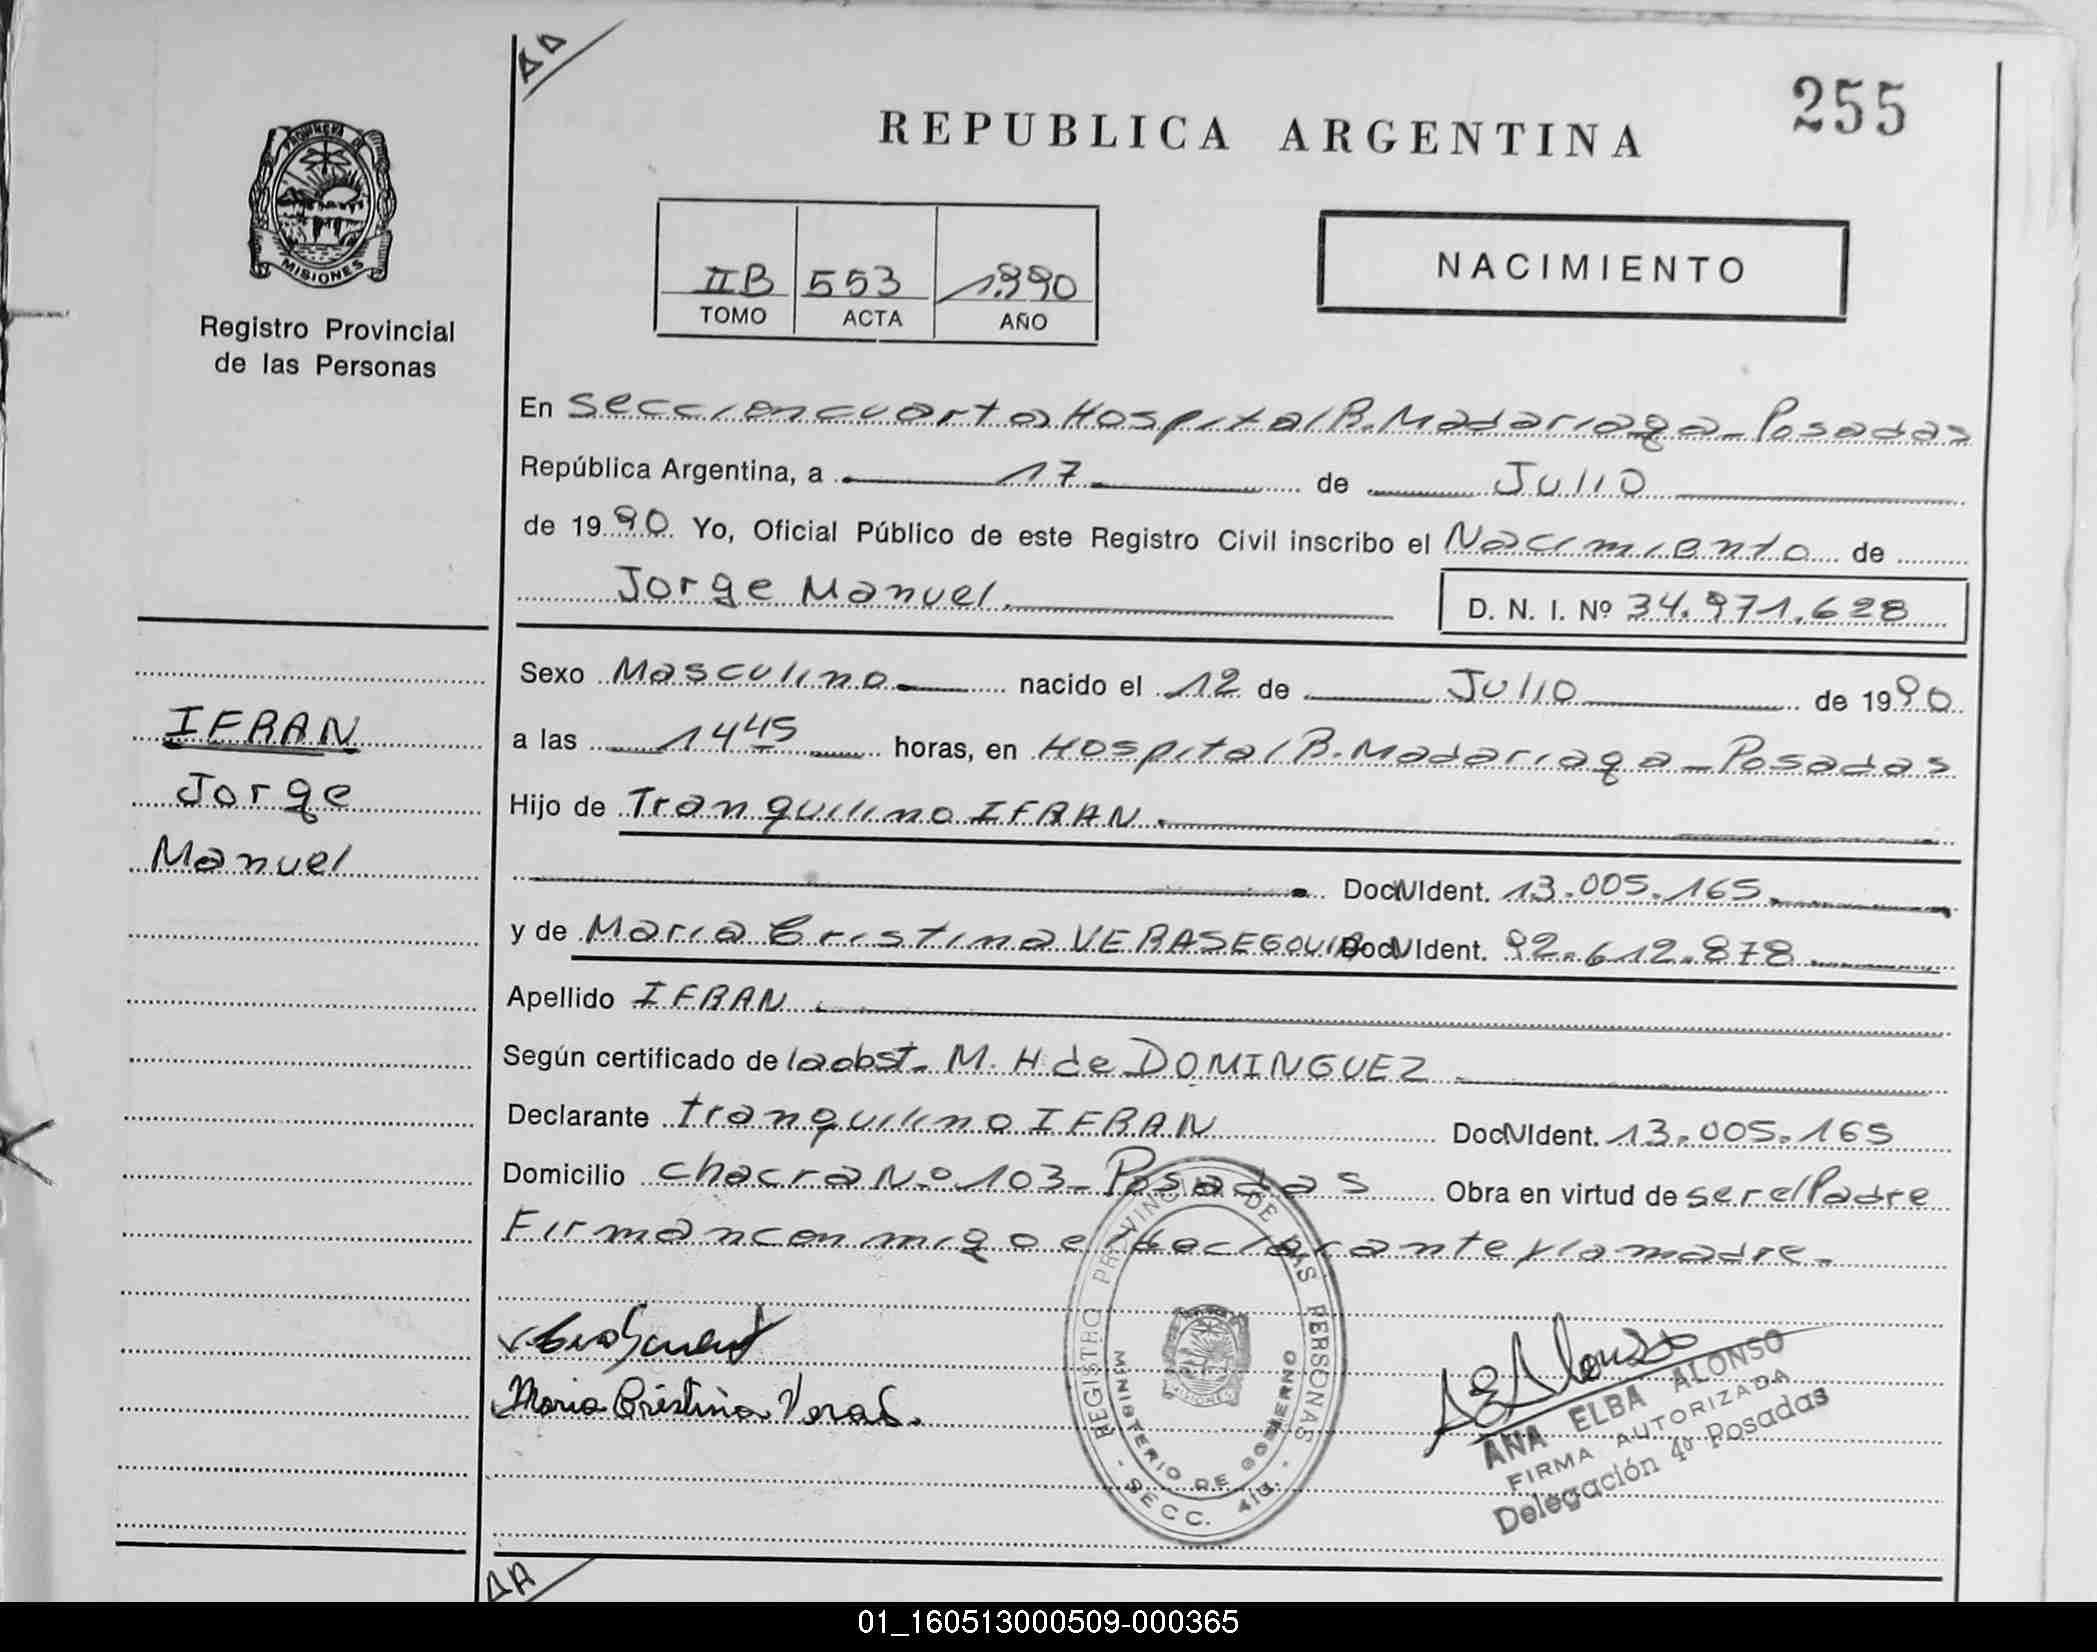 AA
255
REPUBLICA ARGENTINA
PROVINCIA DE
MISIONES
Registro Provincial
de las Personas
IIB 553 1.990
TOMO ACTA AÑO
NACIMIENTO
En Seccion cuarta, Hospital R. Madariaga - Posadas
República Argentina, a 17 de Julio
de 1990. Yo, Oficial Público de este Registro Civil inscribo el Nacimiento de
Jorge Manuel.
D. N. I. Nº 34.971.628
Sexo Masculino nacido el 12 de Julio de 1990
a las 14 45 horas, en Hospital R. Madariaga - Posadas
Hijo de Tranquilino IFRAN.
Doc. N Ident. 13.005.165
y de Maria Cristina VERA SEGOVIA Doc. N Ident. 92.612.878
Apellido IFRAN.
Según certificado de la obst. M. H. de DOMINGUEZ
Declarante tranquilino IFRAN Doc. N Ident. 13.005.165
Domicilio chacra N.º 103 - Posadas Obra en virtud de ser el Padre
Firman conmigo el declarante y la madre.
IFRAN
Jorge
Manuel
Maria Cristina Vera S.
REGISTRO PROVINCIAL DE LAS PERSONAS
MINISTERIO DE GOBIERNO
- SECC. 4ta. -
AEAlonso
ANA ELBA ALONSO
FIRMA AUTORIZADA
Delegación 4ª Posadas
AA
01_160513000509-000365